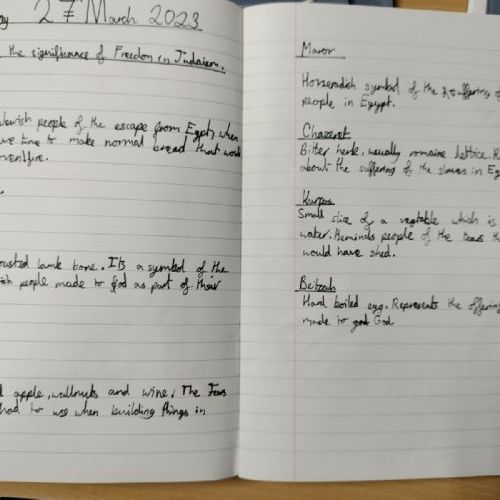 27th March 2023
the significance of Freedom in Judaism.
Jewish people of the escape from Egypt, when
time to make normal bread that would
lamb bone. Its a symbol of the
people made to God as part of their
apple, wallnuts and wine. The
had to use when building things in
Maror
Horseradish symbol of the suffering of
people in Egypt.
Chazeret
Bitter herb, usually romaine lettice.
about the suffering of the slaves in
Karpas
Small slice of a vegtable which is
water. Reminds people of the tears
would have shed.
Beitzah
Hard boiled egg. Represents the offering
made to God